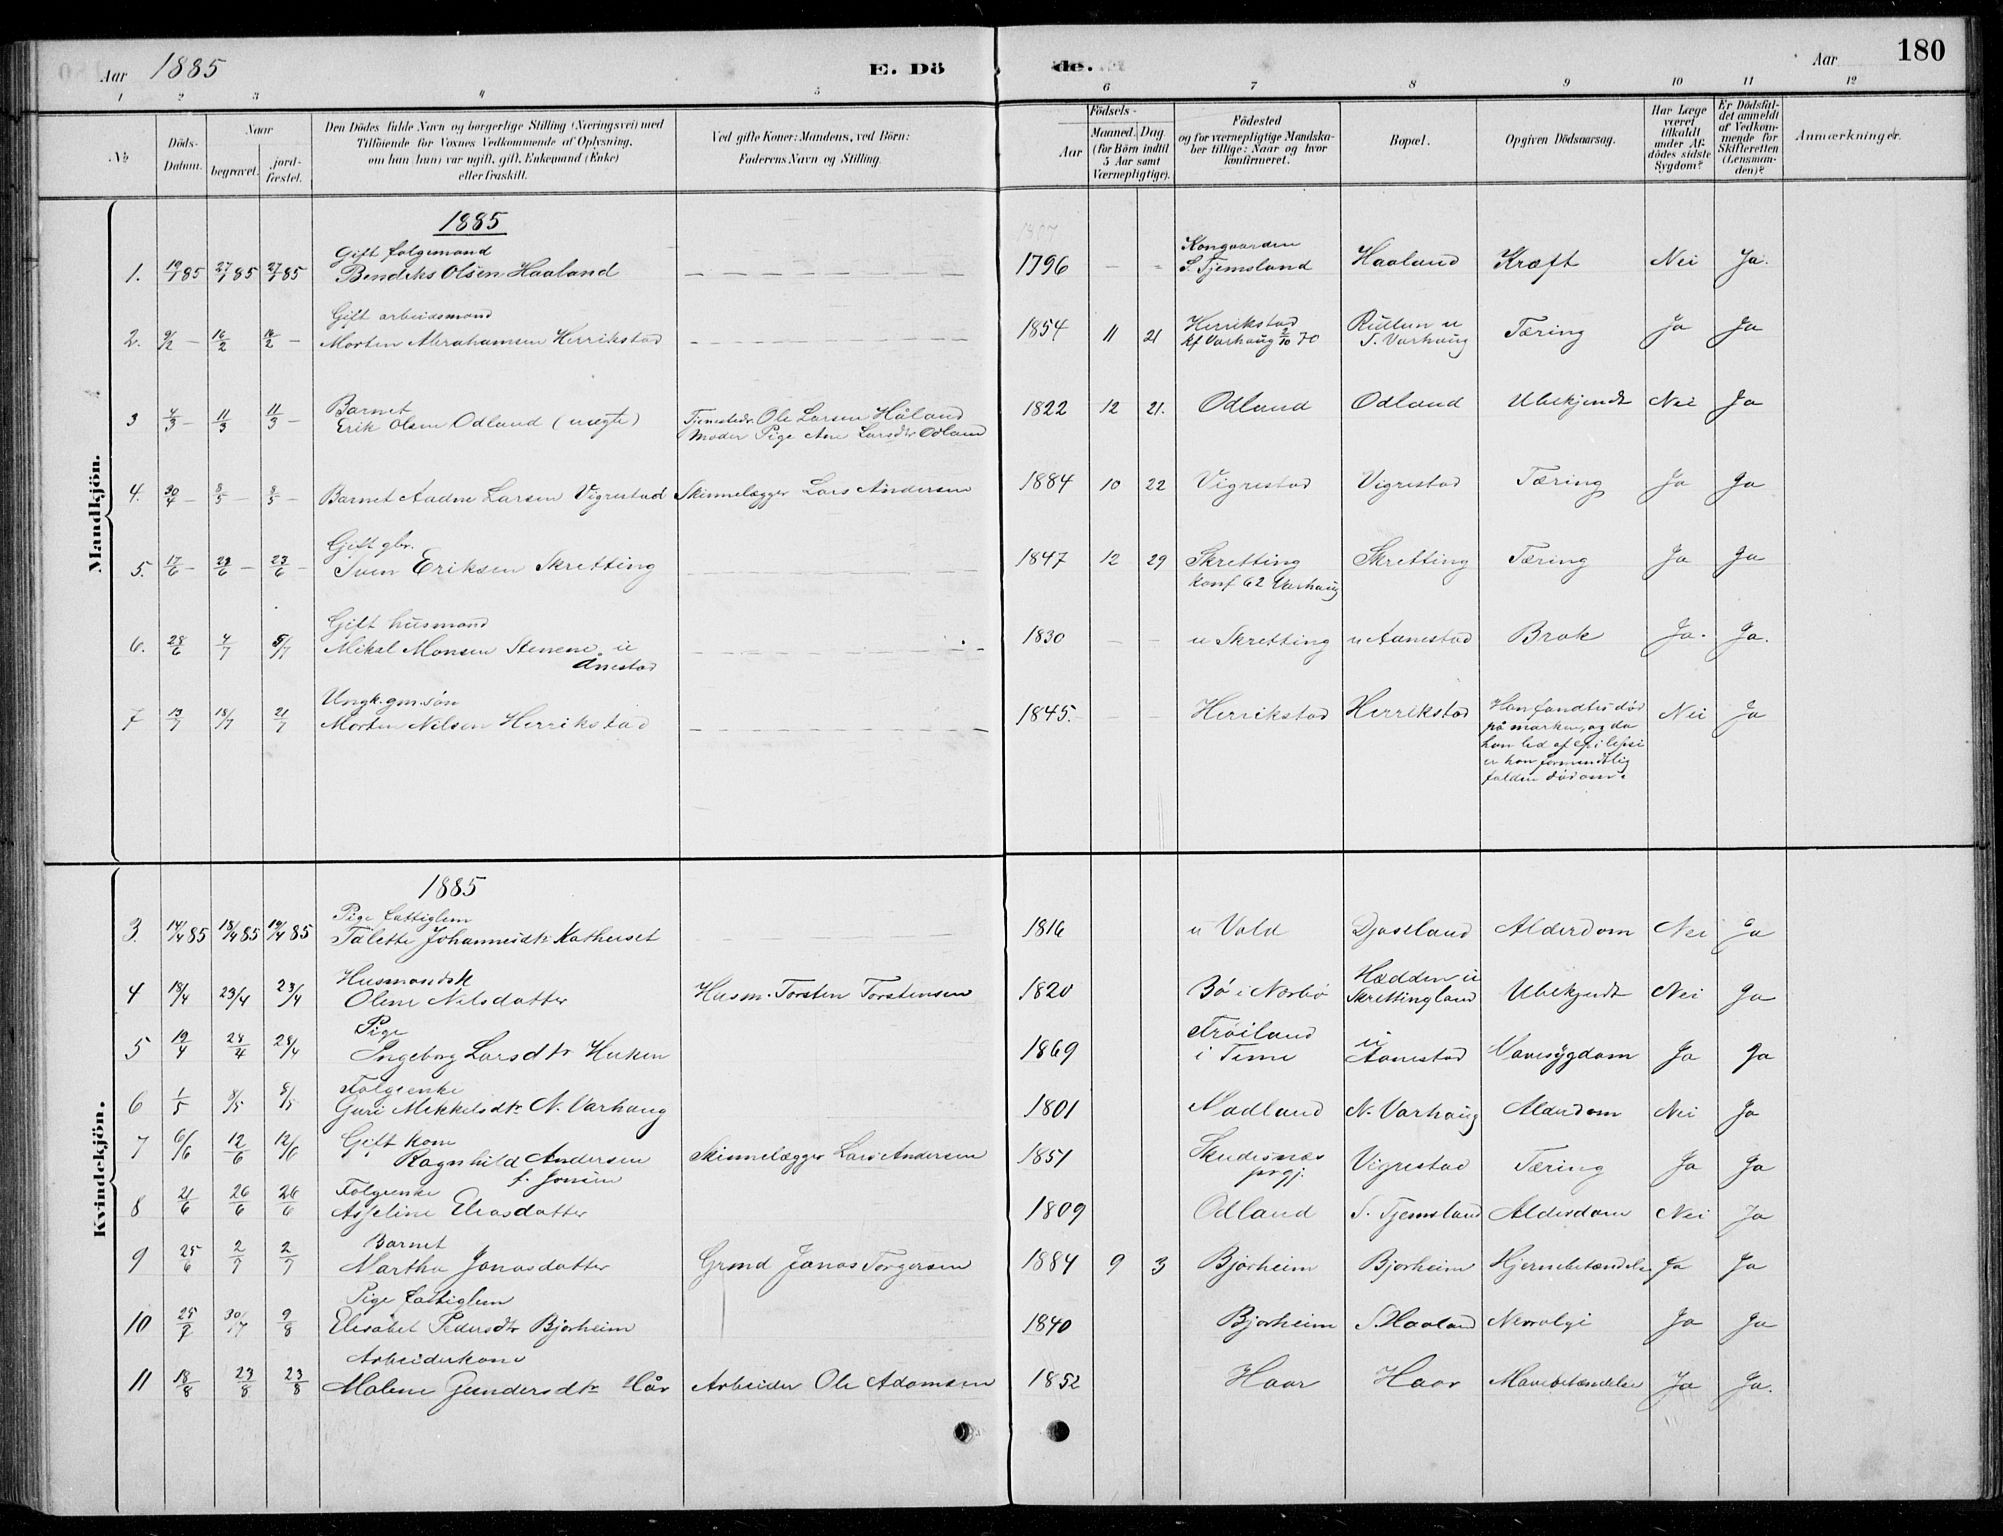 Aar 1885 E. Dö de. Aar 180
1 2 3 4 5 6 7 8 9 10 11 12
№ Döds-Datum. Naar begravet. jord-fæstet. Den Dödes fulde Navn og borgerlige Stilling (Næringsvei) med Tilföiende for Voxnes Vedkommende af Oplysning, om han (hun) var ugift, gift, Enkemand (Enke) eller fraskilt. Ved gifte Koner: Mandens, ved Börn: Faderens Navn og Stilling. Födsels- Aar Maaned. Dag. (for Börn indtil 5 Aar samt Værnepligtige). Födested og for værnepligtige Mandskaber tillige: Naar og hvor konfirmeret. Bopæl. Opgiven Dödsaarsag. Har Læge været tilkaldt under Afdödes sidste Sygdom? Er Dödsfaldet anmeldt af Vedkommende for Skifteretten (Lensmanden)? Anmærkninger.
Mandkjön.
1885
Gift folgemand Kongaarden
1. 19/1 85 27/1 85 27/1 85 Bendiks Olsen Haaland 1796 S. Tjemsland Haaland Kræft Nei Ja.
Gift arbeidsmand
2. 9/2 16/2 16/2 Morten Abrahamsen Herrikstad 1854 11 21 Herrikstad kf Varhaug 2/10 70 Rullun u S. Varhaug Tæring Ja Ja
Barnet
3 4/3 11/3 11/3 Erik Olsen Odland (uægte) Tjenestedr. Ole Larsen Håland 1822 12 21. Odland Odland Ubekjendt Nei Ja
Moder Pige Ane Larsdtr Odland
4. 30/4 8/5 8/5 Barnet Aadne Larsen Vigrestad Skinnelægger Lars Andersen 1884 10 22 Vigrestad Vigrestad Tæring Ja Ja
Gift gbr.
5. 17/6 23/6 23/6 Sven Eriksen Skretting 1847 12 29 Skretting Skretting Tæring Ja Ja
konf 62 Varhaug
Gift husmand
6. 28/6 4/7 5/7 Mikal Monsen Stenene u 1830 u Skretting u Aanestad Brok Ja. Ja.
Anestad
Ungk. gm. søn
7 13/7 18/7 21/7 Morten Nilsen Herrikstad 1845. Herrikstad Herrikstad Han fandtes død Nei Ja
på marken, og da
han led af epilepsi
er han formentlig
falden død om.
Kvindekjön.
1885
Pige fattiglem
3. 14/4 85 18/4 85 19/4 85 Talette Johannesdtr Kotheset 1816 u Vold Djaseland Alderdom Nei Ja
Husmandsk
4 18/4 23/4 23/4 Olene Nilsdatter Husm. Torsten Torstensen 1820 Bø i Nærbø Hødden u Skrettingland Ubekjendt Nei Ja
Pige
5 19/4 28/4 28/4 Ingeborg Larsdtr Huken 1869 Frøiland i Time u Aanestad Mavesygdom Ja Ja
Folgeenke
6 1/5 8/5 8/5 Guri Mikkelsdtr N. Varhaug 1801 Madland N. Varhaug Alderdom Nei Ja
Gift kone
7 6/6 12/6 12/6 Ragnhild Andersen Skinnelægger Lars Andersen 1851 Skudesnæs prgj. Vigrestad Tæring Ja Ja
Folgeenke
8 21/6 26/6 26/6 Asseline Eliasdatter 1809 Odland S. Tjemsland Alderdom Nei Ja
Barnet
9 25/6 2/7 2/7 Martha Jonasdatter Grmd Jonas Torgersen 1884 9 3 Bjorheim Bjorheim Hjernebetændelse Ja Ja
Pige fattiglem
10 25/7 30/7 9/8 Elisabet Pedersdtr Bjorheim 1840 Bjorheim S. Haaland Nevralgi Ja Ja
Arbeiderkone
11 18/8 23/8 23/8 Malene Gundersdtr Hår Arbeider Ole Adamsen 1852 Haar Haar Mavebetændelse Ja Ja.